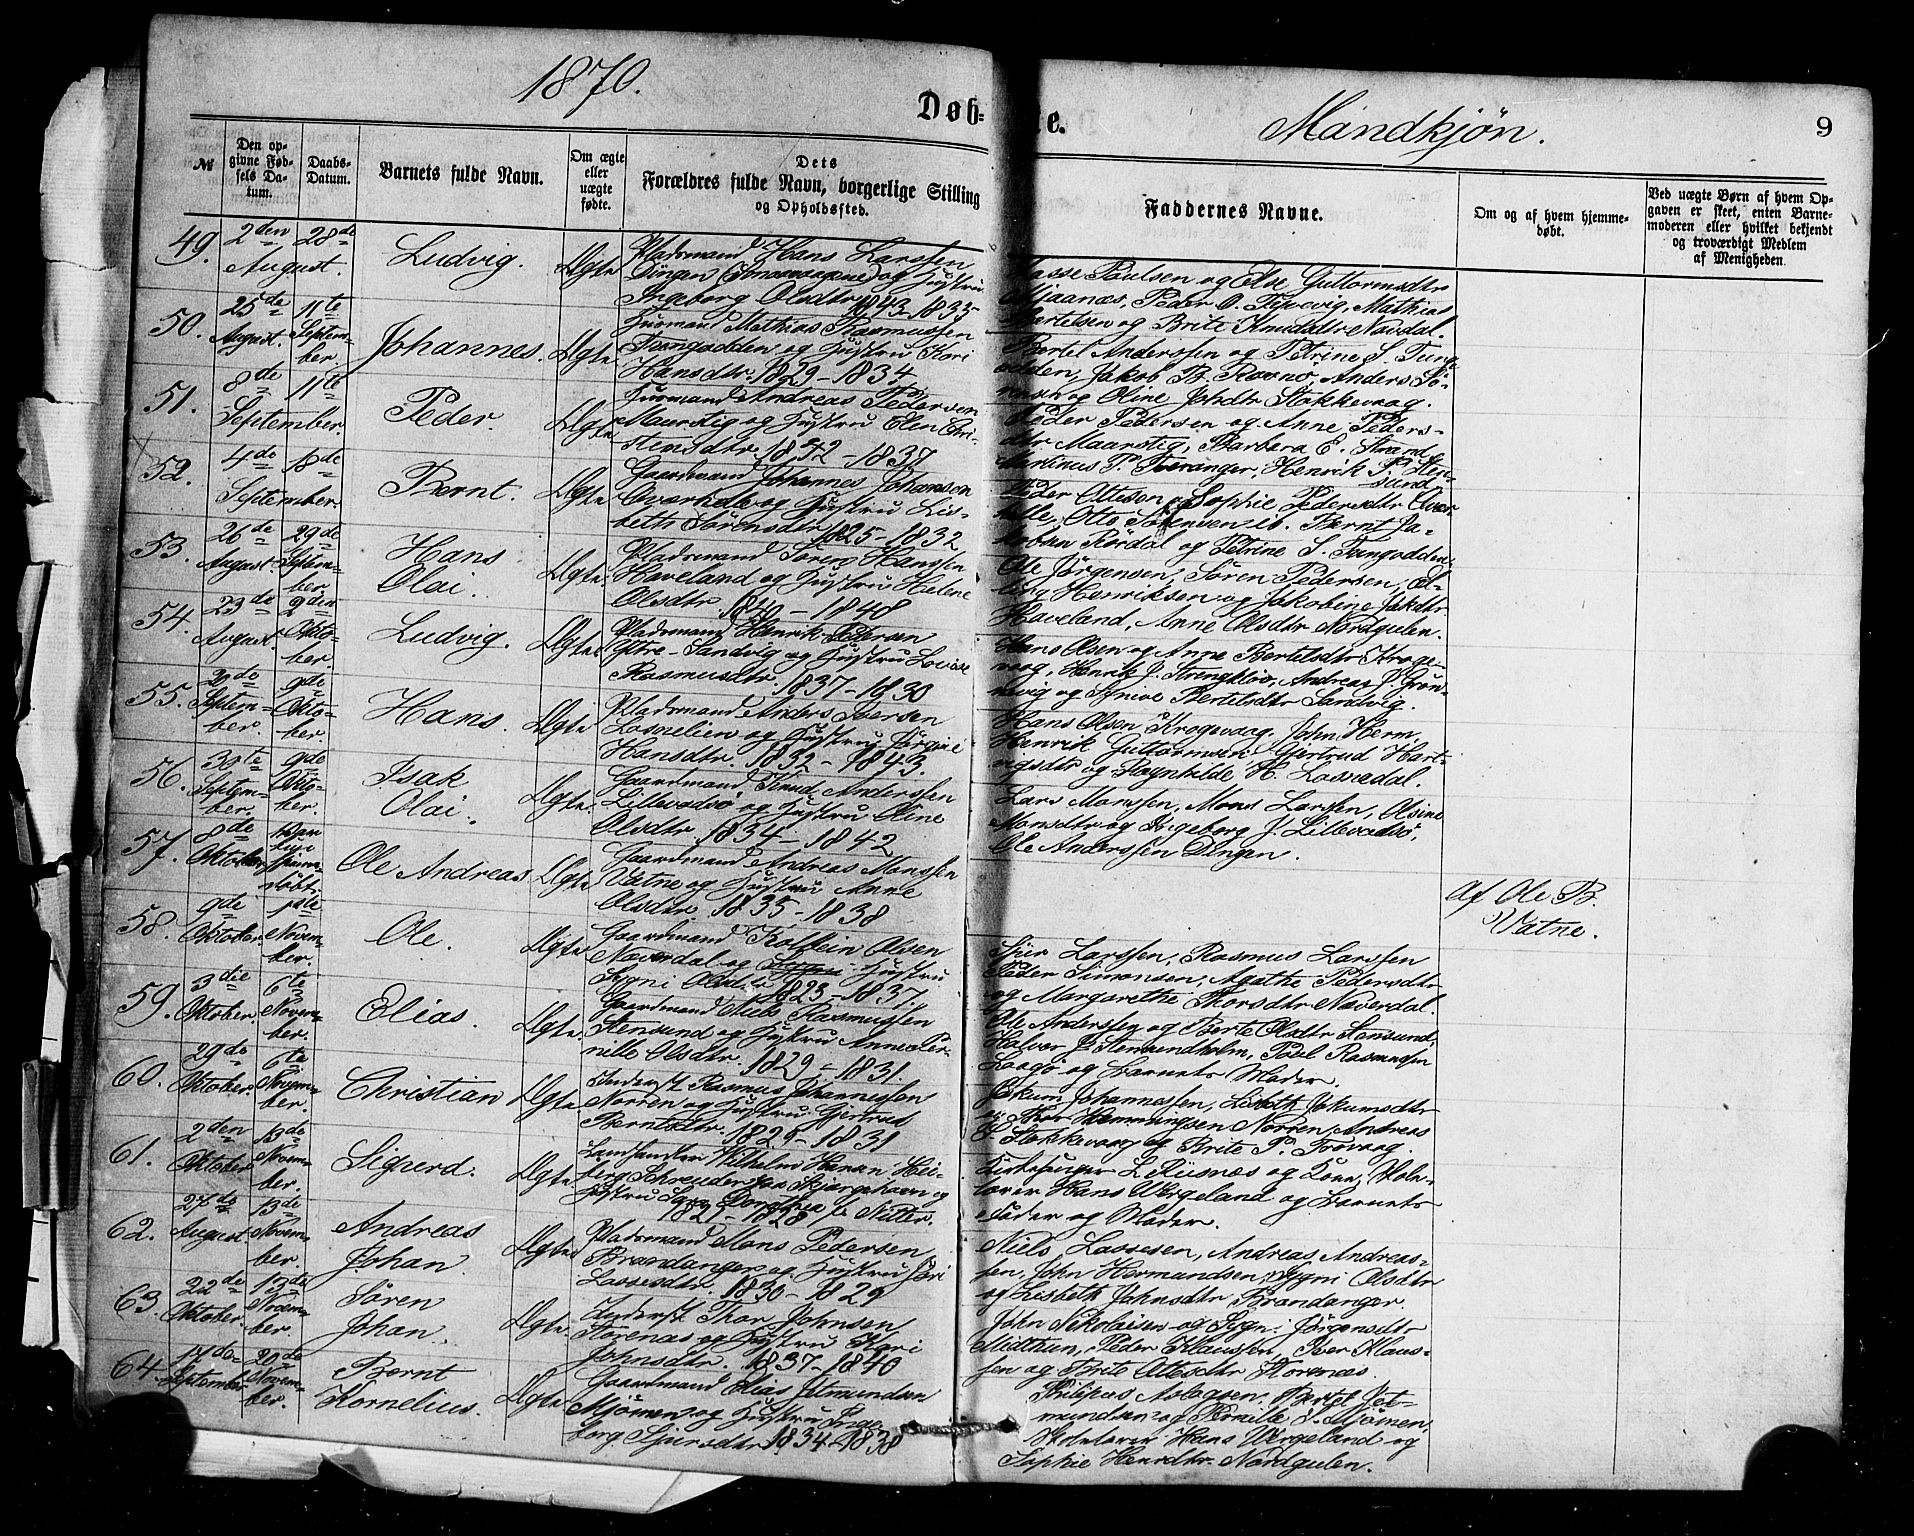 1870.
Døb-
te.
Mandkjøn.
9
№
Den op-
givne Fød-
sels Da-
tum.
Daabs-
Datum.
Barnets fulde Navn.
Om ægte
eller
uægte
fødte.
Dets
Forældres fulde Navn, borgerlige Stilling
og Opholdssted.
Faddernes Navne.
Om og af hvem hjemme-
døbt.
Ved uægte Børn af hvem Op-
gaven er skeet, enten Barne-
moderen eller hvilket bekjendt
og troværdigt Medlem
af Menigheden.
49.
2den
August.
28de
Ludvig.
Ægte
Pladsmand Hans Larssen
Dingen og Hustru
Ingeborg Olsdtr 1843-1835
Lasse Paulsen og Else Guttormsdtr
Mjaanæs, Peder O. Tyvevig, Mathias
Bertelsen og Brite Knudsdtr Navdal.
50.
25de
August.
11te
Septem-
ber.
Johannes.
Ægte
Huusmand Mathias Rasmussen
Tungodden og Hustru Kari
Hansdtr. 1829-1834
Bertel Anderssen og Petrine S. Tung-
odden, Jakob B. Ravnø, Anders Sø-
rensen og Oline Johsdtr Stokkevaag.
51.
8de
September.
11te
Peder.
Ægte
Huusmand Andreas Pedersen
Maurstig og Hustru Elen Chri-
stensdtr. 1842-1837
Peder Pedersen og Anne Peders-
dtr Maarstig, Barbara E. Strand,
Martinus P. Tveranger, Henrik P. Sten-
sund.
52.
4de
September.
18de
Bernt.
Ægte
Gaardmand Johannes Johansen
Oværhelle og Hustru Lis-
beth Sørensdtr 1825-1832
Peder Ottesen og Sophie Pedersdtr Over-
helle, Otto Sørensen ib. Bernt Ja-
kobsen Rørdal og Petrine S. Tungodden.
53.
26de
August.
29de
Septem-
ber.
Hans
Olai.
Ægte
Pladsmand Søren Hanssen
Haveland og Hustru Helene
Olsdtr. 1840-1848
Ole Jørgensen, Søren Pedersen, El-
ling Henriksen og Jakobine Jaksdtr
Haveland, Anne Olsdtr Nordgulen.
54.
23de
August.
2den
Okto-
ber.
Ludvig.
Ægte
Pladsmand Henrik Pedersen
Yttre-Sandvig og Hustru Lovise
Rasmusdtr. 1837-1830
Hans Olsen og Anne Bertelsdtr Kroge-
vaag, Henrik J. Strengkløv, Andreas J. Grøn-
nevig og Synive Bertelsdtr Sandvig.
55.
20de
Septem-
ber.
9de
Okto-
ber.
Hans.
Ægte
Pladsmand Anders Iversen
Lassælien og Hustru Jørgine
Hansdtr. 1832-1843.
Hans Olsen Krogevaag, John Herm,
Henrik Guttormsen, Gjertrud Hart-
vigsdtr og Raynhilde H. Lassedal.
56.
30te
Septem-
ber.
9de
Okto-
ber.
Isak
Olai.
Ægte
Gaardmand Knud Anderssen
Lillevadsø og Hustru Oline
Olsdtr. 1834-1842
Lars Monssen, Mons Larssen, Olsine
Monsdtr og Ingeborg J. Lillevadsø,
Ole Anderssen Dingen.
57.
8de
Oktober.
hjem-
døbt.
Ole Andreas
Ægte
Gaardmand Andreas Monssen
Vatne og Hustru Anne
Olsdtr. 1835-1838
Af Ole B.
Vatne.
58.
9de
Oktober.
1ste
Novem-
ber.
Ole.
Ægte
Gaardmand Kolbein Olsen
Næverdal og Hustru
Sygni Olsdtr 1823-1837.
Sjur Larssen, Rasmus Larssen
Peder Simonsen, Agathe Pedersdtr
og Margarethe Thorsdtr Næverdal.
59.
3die
Oktober.
6te
Novem-
ber.
Elias.
Ægte
Gaardmand Niels Rasmussen
Stensund og Hustru Anne Per-
nille Olsdtr. 1829-1831.
Ole Anderssen og Berte Olsdtr Stensund,
Halvor J. Stensundholm, Povel Rasmussen
Laagø og Barnets Moder.
60.
29de
Oktober.
6te
Novem-
ber.
Christian
Ægte
Inderst Rasmus Johannessen
Norren og Hustru Gjertrud
Berntsdtr. 1829-1831
Jokum Johannessen, Lisbeth Jokumsdtr
og Thor Hemmingsen Norren, Andreas
P. Stokkevaag og Brite P. Trovaag.
61.
2den
Oktober
13de
Novem-
ber.
Sigurd.
Ægte
Landhandler Wilhelm Hansen Hei-
berg Schreuder paa Skjærgehavn og
Hustru Sara Dorothea f. Nitter.
1827-1828
Kirkesanger L. Risnæs og Kone, Skole-
lærer Hans Wergeland og Barnets
Fader og Moder.
62.
27de
August
13de
Novem-
ber.
Andreas
Johan.
Ægte
Pladsmand Mons Pedersen
Brandanger og Hustru Siri
Lassesdtr. 1830-1829
Niels Lassesen, Andreas Andreas-
sen, John Hermundsen, Sygni Olsdtr
og Lisbeth Johnsdtr Brandanger.
63.
22de
Oktober.
13de
Novem-
ber.
Søren
Johan.
Ægte
Inderst Thor Johnsen
Korenæs og Hustru Kari
Johnsdtr. 1837-1840
John Nikolaisen og Sygni Jørgensdtr
Midthun, Peder Klaussen, Iver Klaus-
sen og Brite Ottesdtr Korenæs.
64.
17de
September
20de
Novem-
ber.
Bernt
Kornelius.
Ægte
Gaardmand Elias Jetmundsen
Mjømen og Hustru Inge-
borg Sjursdtr. 1834-1838
Philipus Aslagsen, Bertel Jet-
mundsen og Pernille J. Mjømen,
Skolelærer Hans Wergeland og
Sophie Henrdtr. Nordgulen.